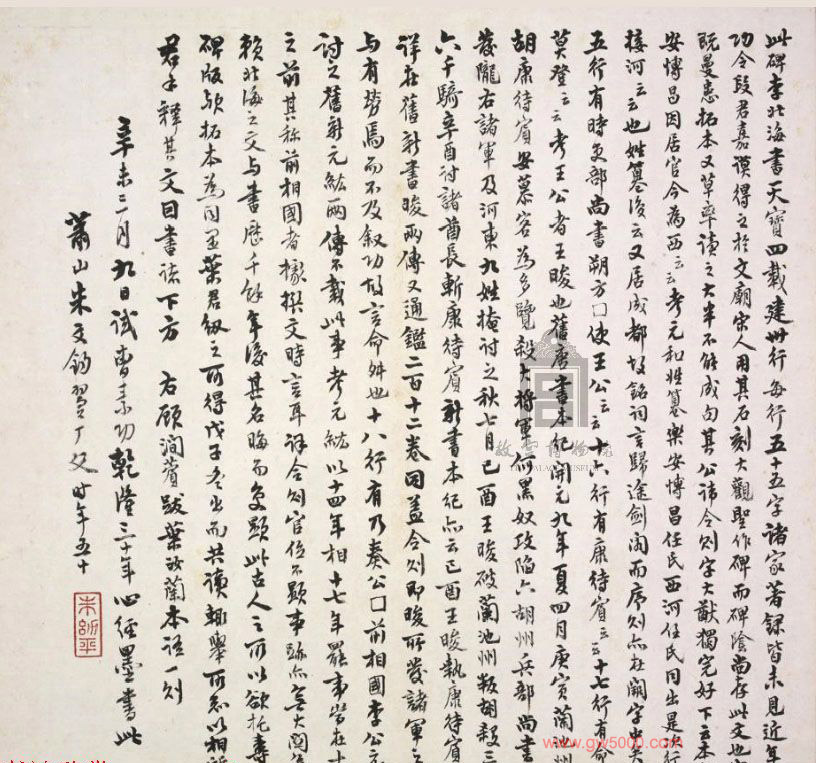 此碑李北海書天寶四載建卅行每行五十五字諸家著錄皆未見近年
功令段君嘉謨得之於文廟宋人用其石刻大觀聖作碑而碑陰尚存此文也
既曼患拓本又草率讀之大半不能成句其公諱令則字大猷獨完好下云本
安博昌因居官今為西云云考元和姓纂樂安博昌任氏西河任氏同出是行
接河云云也姓纂後云又居成都故銘詞言歸途劍閣而序則亦在闕字中矣
五行有時吏部尚書朔方口使王公云云十六行有康待賓云云十七行有命
莫登云云考王公者王晙也舊唐書本紀開元九年夏四月庚寅蘭池州
胡康待賓安慕容為多覽殺大將軍何黑奴攻陷六胡州兵部尚書
發隴右諸軍及河東九姓掩討之秋七月己酉王晙破蘭池州叛胡殺三
六千騎辛酉討諸酋長斬康待賓新書本紀亦云己酉王晙執康待賓
詳在舊新書晙兩傳又通鑑二百十二卷因蓋令則即晙所發諸軍之
与有勞焉而不及敘功故言命舛也十八行有乃奏公口前相國李公元
討之舊新元紘兩傳不載此事考元紘以十四年相十七年罷事當在十
之前其稱前相國者據撰文時言耳詳令則官位不顯事跡亦無大關
賴北海之文与書歷千餘年後其名晦而復顯此古人之所以欲托壽
碑版歟拓本為同里葉君紉之所得戊子冬出而共讀輒舉所知以相
君手釋其文因書諸下方 右顧澗薲跋葉汝蘭本語一則
辛未二月九日試曹素功乾隆三十年心經墨書此
蕭山朱文鈞翼丁父時年五十
朱幼平
故宮博物院
THE PALACE MUSEUM
www.gw5000.com